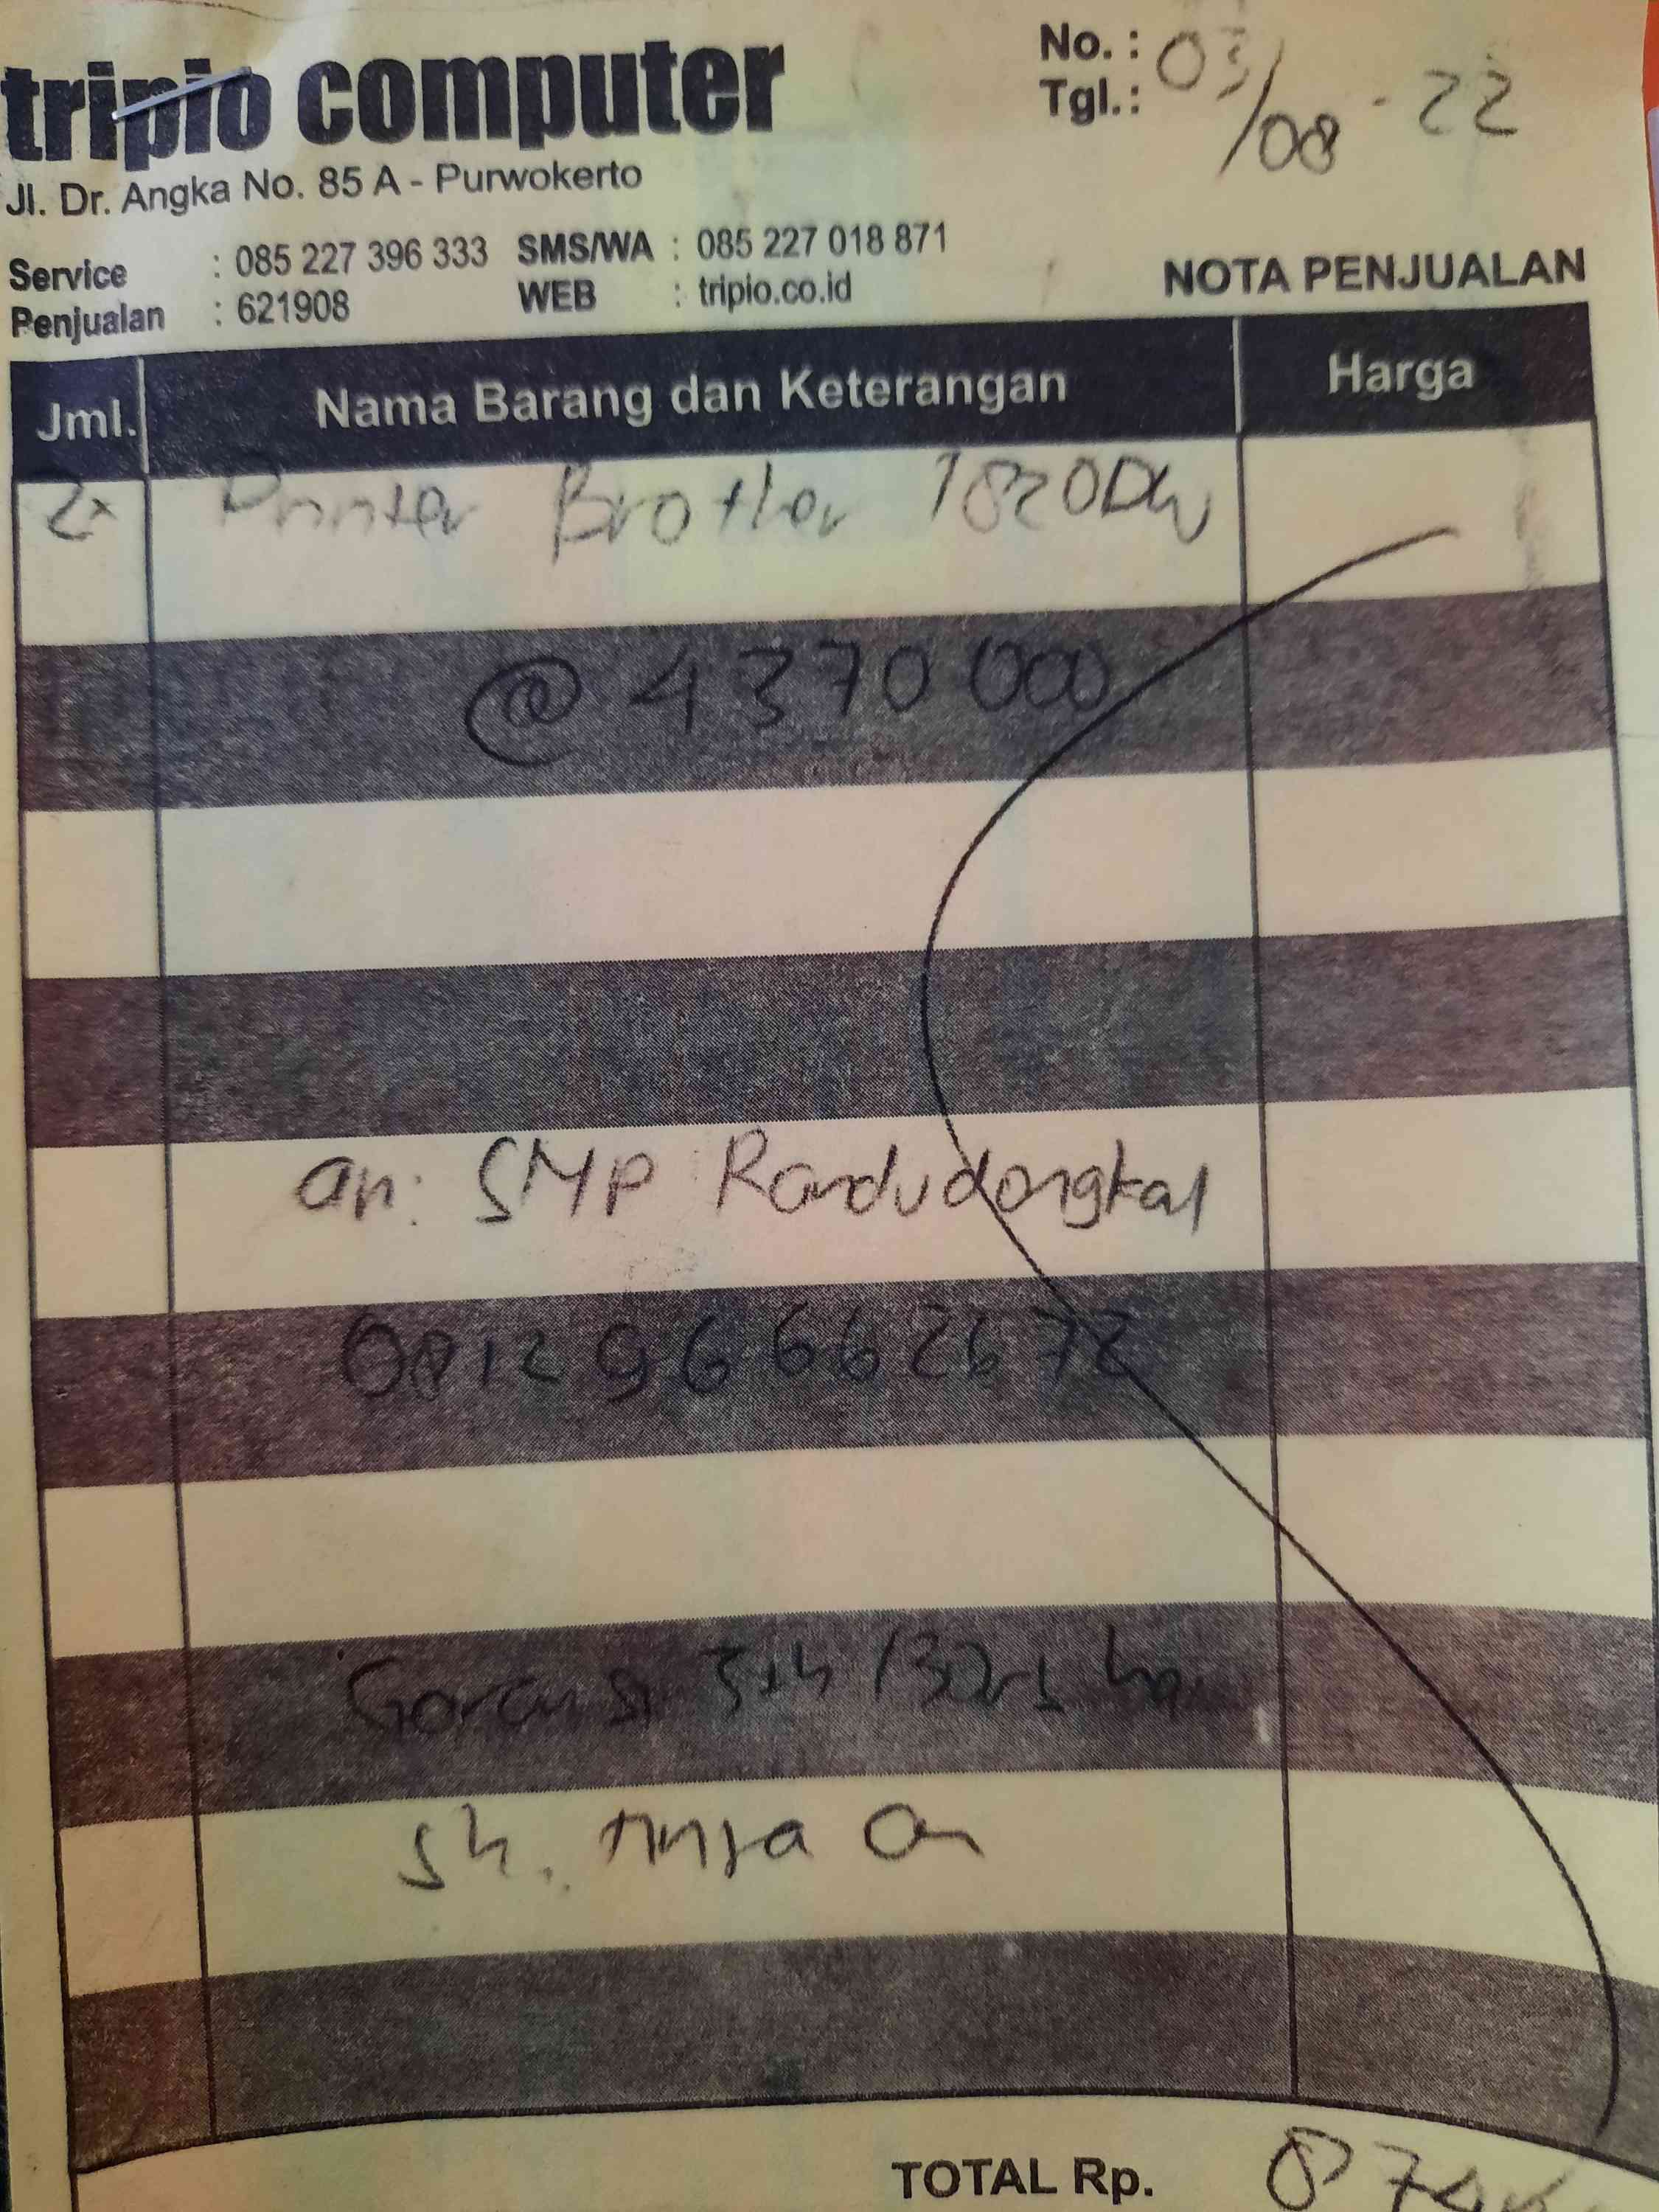 tripio computer
No. :
Tgl. : 03/08 - 22
Jl. Dr. Angka No. 85 A - Purwokerto
Service : 085 227 396 333 SMS/WA : 085 227 018 871
Penjualan : 621908 WEB : tripio.co.id
NOTA PENJUALAN
Jml. Nama Barang dan Keterangan Harga
2x Printer Brother T820DW
@ 4370 000
an: SMP Randudongkal
081296662672
Garansi 3th /
TOTAL Rp. 874